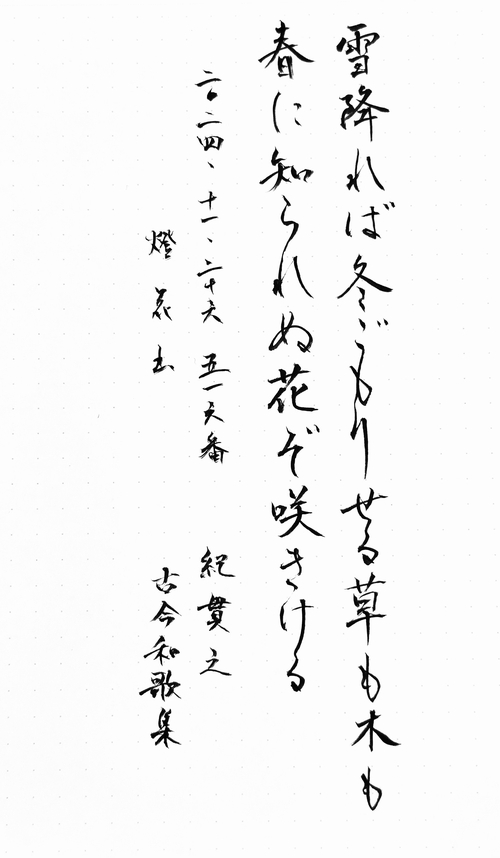 雪降れば冬ごもりせる草も木も
春に知られぬ花ぞ咲きける
二〇二四、十一、二十六 五一六番
紀貫之
燈
古今和歌集